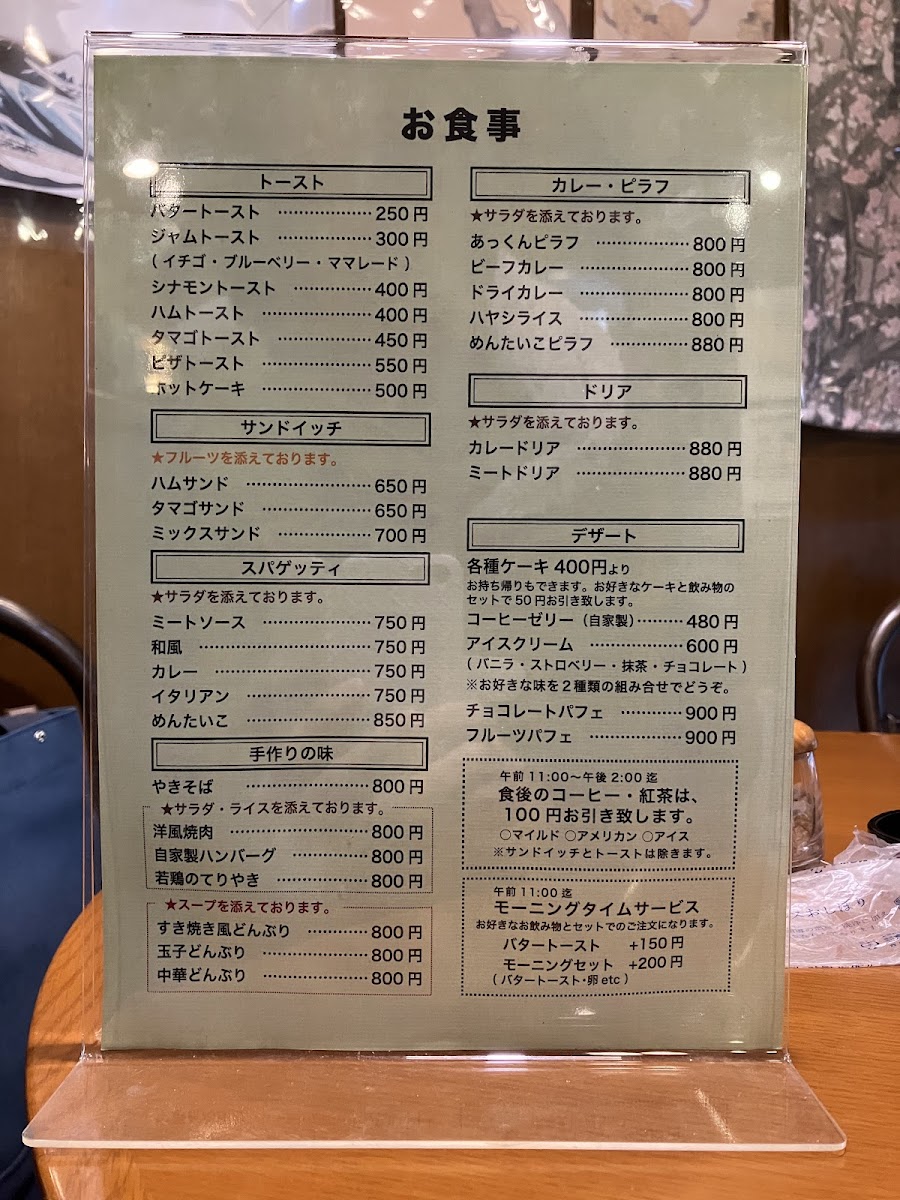 お食事
トースト
バタートースト ………………250円
ジャムトースト ………………300円
(イチゴ・ブルーベリー・ママレード)
シナモントースト ……………400円
ハムトースト …………………400円
タマゴトースト ………………450円
ピザトースト …………………550円
ホットケーキ …………………500円
サンドイッチ
★フルーツを添えております。
ハムサンド ……………………650円
タマゴサンド …………………650円
ミックスサンド ………………700円
スパゲッティ
★サラダを添えております。
ミートソース …………………750円
和風 ……………………………750円
カレー …………………………750円
イタリアン ……………………750円
めんたいこ ……………………850円
手作りの味
やきそば ………………………800円
★サラダ・ライスを添えております。
洋風焼肉 ………………………800円
自家製ハンバーグ ……………800円
若鶏のてりやき ………………800円
★スープを添えております。
すき焼き風どんぶり …………800円
玉子どんぶり …………………800円
中華どんぶり …………………800円
カレー・ピラフ
★サラダを添えております。
あっくんピラフ ………………800円
ビーフカレー …………………800円
ドライカレー …………………800円
ハヤシライス …………………800円
めんたいこピラフ ……………880円
ドリア
★サラダを添えております。
カレードリア …………………880円
ミートドリア …………………880円
デザート
各種ケーキ 400円より
お持ち帰りもできます。お好きなケーキと飲み物の
セットで50円お引き致します。
コーヒーゼリー(自家製)………480円
アイスクリーム ………………600円
(バニラ・ストロベリー・抹茶・チョコレート)
※お好きな味を2種類の組み合せでどうぞ。
チョコレートパフェ …………900円
フルーツパフェ ………………900円
午前11:00～午後2:00迄
食後のコーヒー・紅茶は、
100円お引き致します。
○マイルド ○アメリカン ○アイス
※サンドイッチとトーストは除きます。
午前11:00迄
モーニングタイムサービス
お好きなお飲み物とセットでのご注文になります。
バタートースト +150円
モーニングセット +200円
(バタートースト・卵etc)
おしぼり